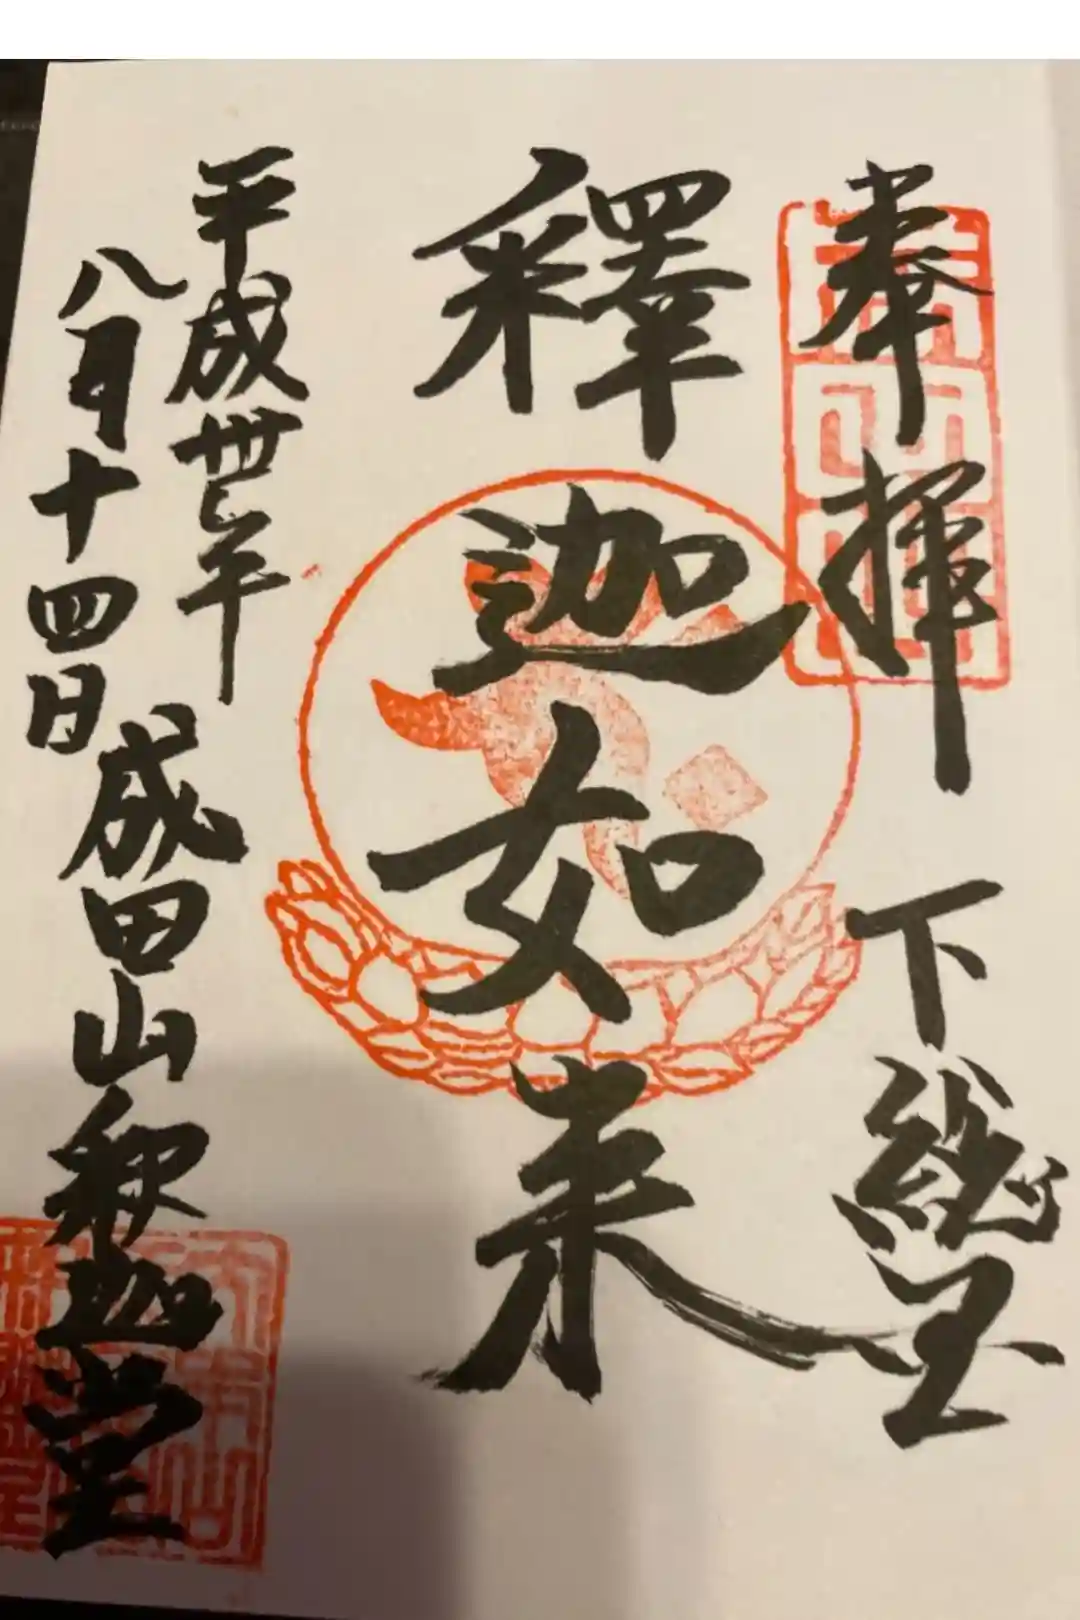 奉拝 下総国
釋迦如来
平成丗年
八月十四日
成田山釈迦堂